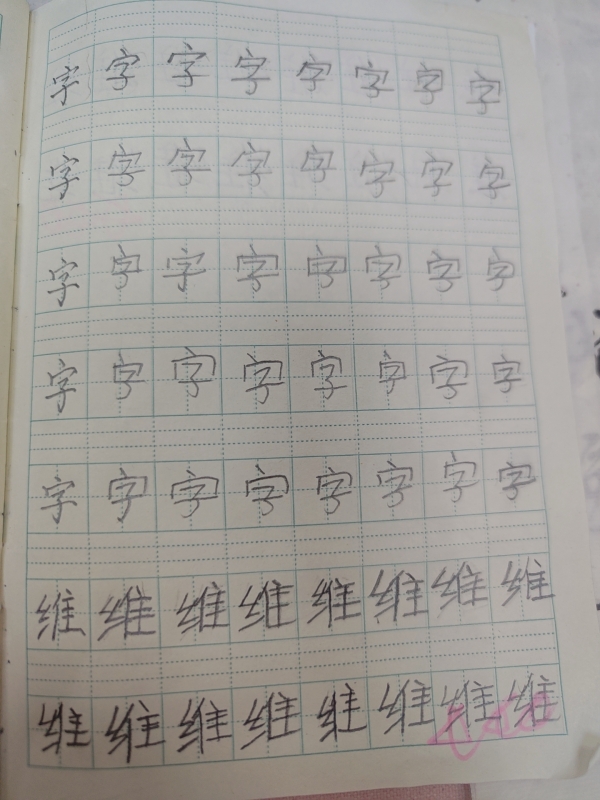 字字字字字字字字
字字字字字字字字
字字字字字字字字
字字字字字字字字
字字字字字字字字
维维维维维维维维
维维维维维维维维